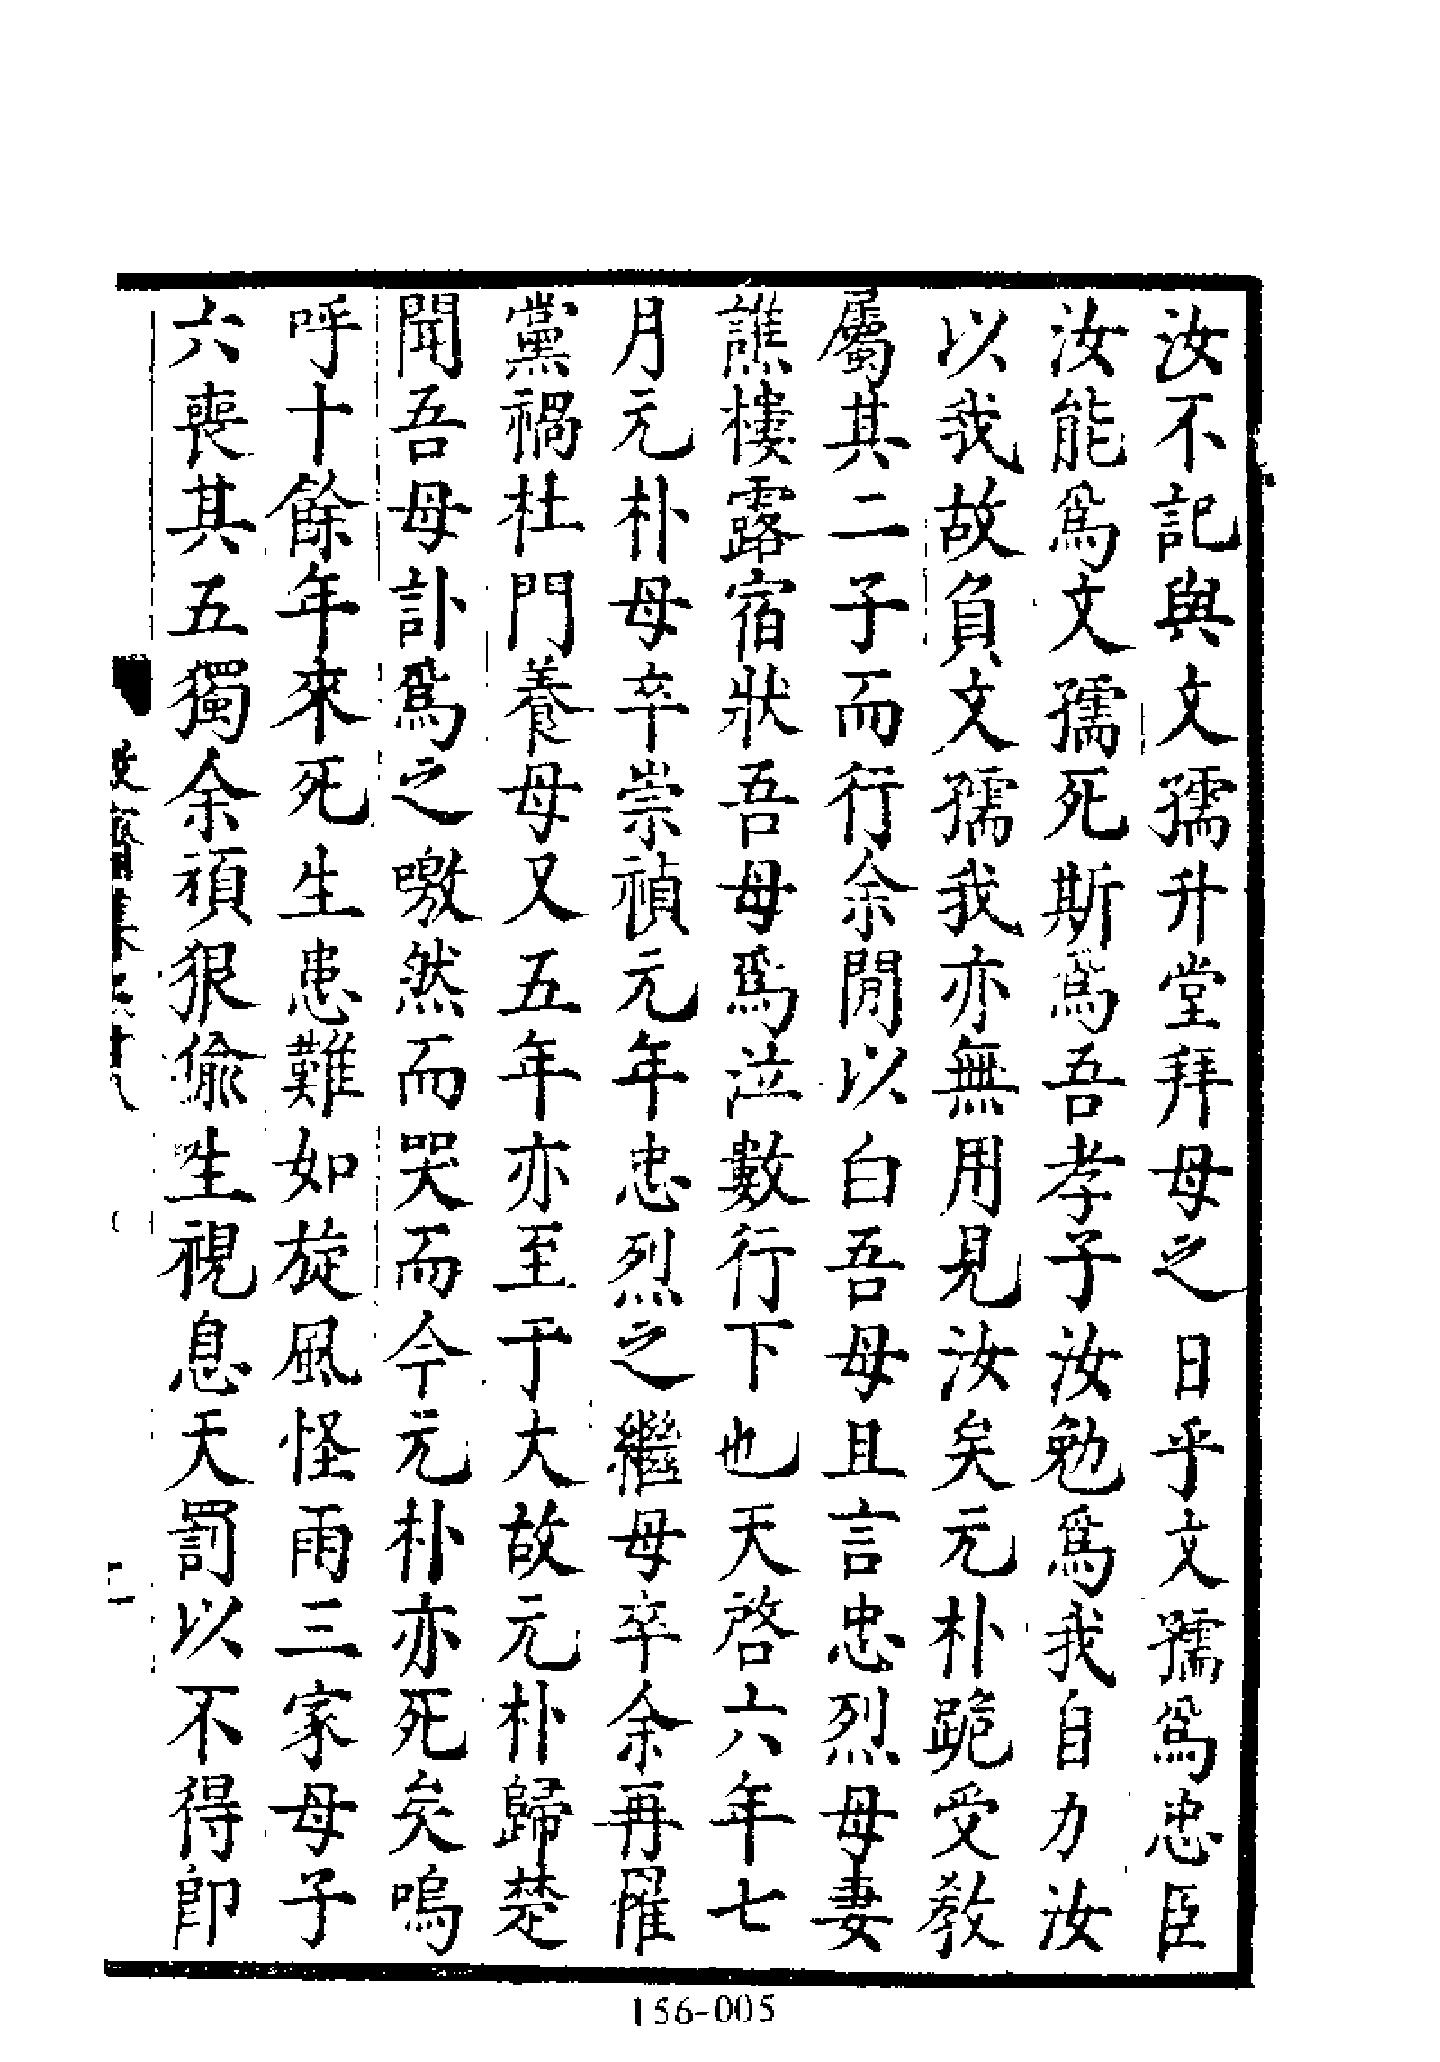 汝不記與文孺升堂拜母之日乎文孺爲忠臣
汝能爲文孺死斯爲吾孝子汝勉爲我自力汝
以我故負文孺我亦無用見汝矣元朴跪受敎
屬其二子而行余閒以白吾母且言忠烈母妻
譙樓露宿狀吾母爲泣數行下也天啓六年七
月元朴母卒崇禎元年忠烈之繼母卒余再罹
黨禍杜門養母又五年亦至于大故元朴歸楚
聞吾母訃爲之噭然而哭而今元朴亦死矣嗚
呼十餘年來死生患難如旋風怪雨三家母子
六喪其五獨余頑狠偷生視息天罰以不得卽
集
十八
二
156-005